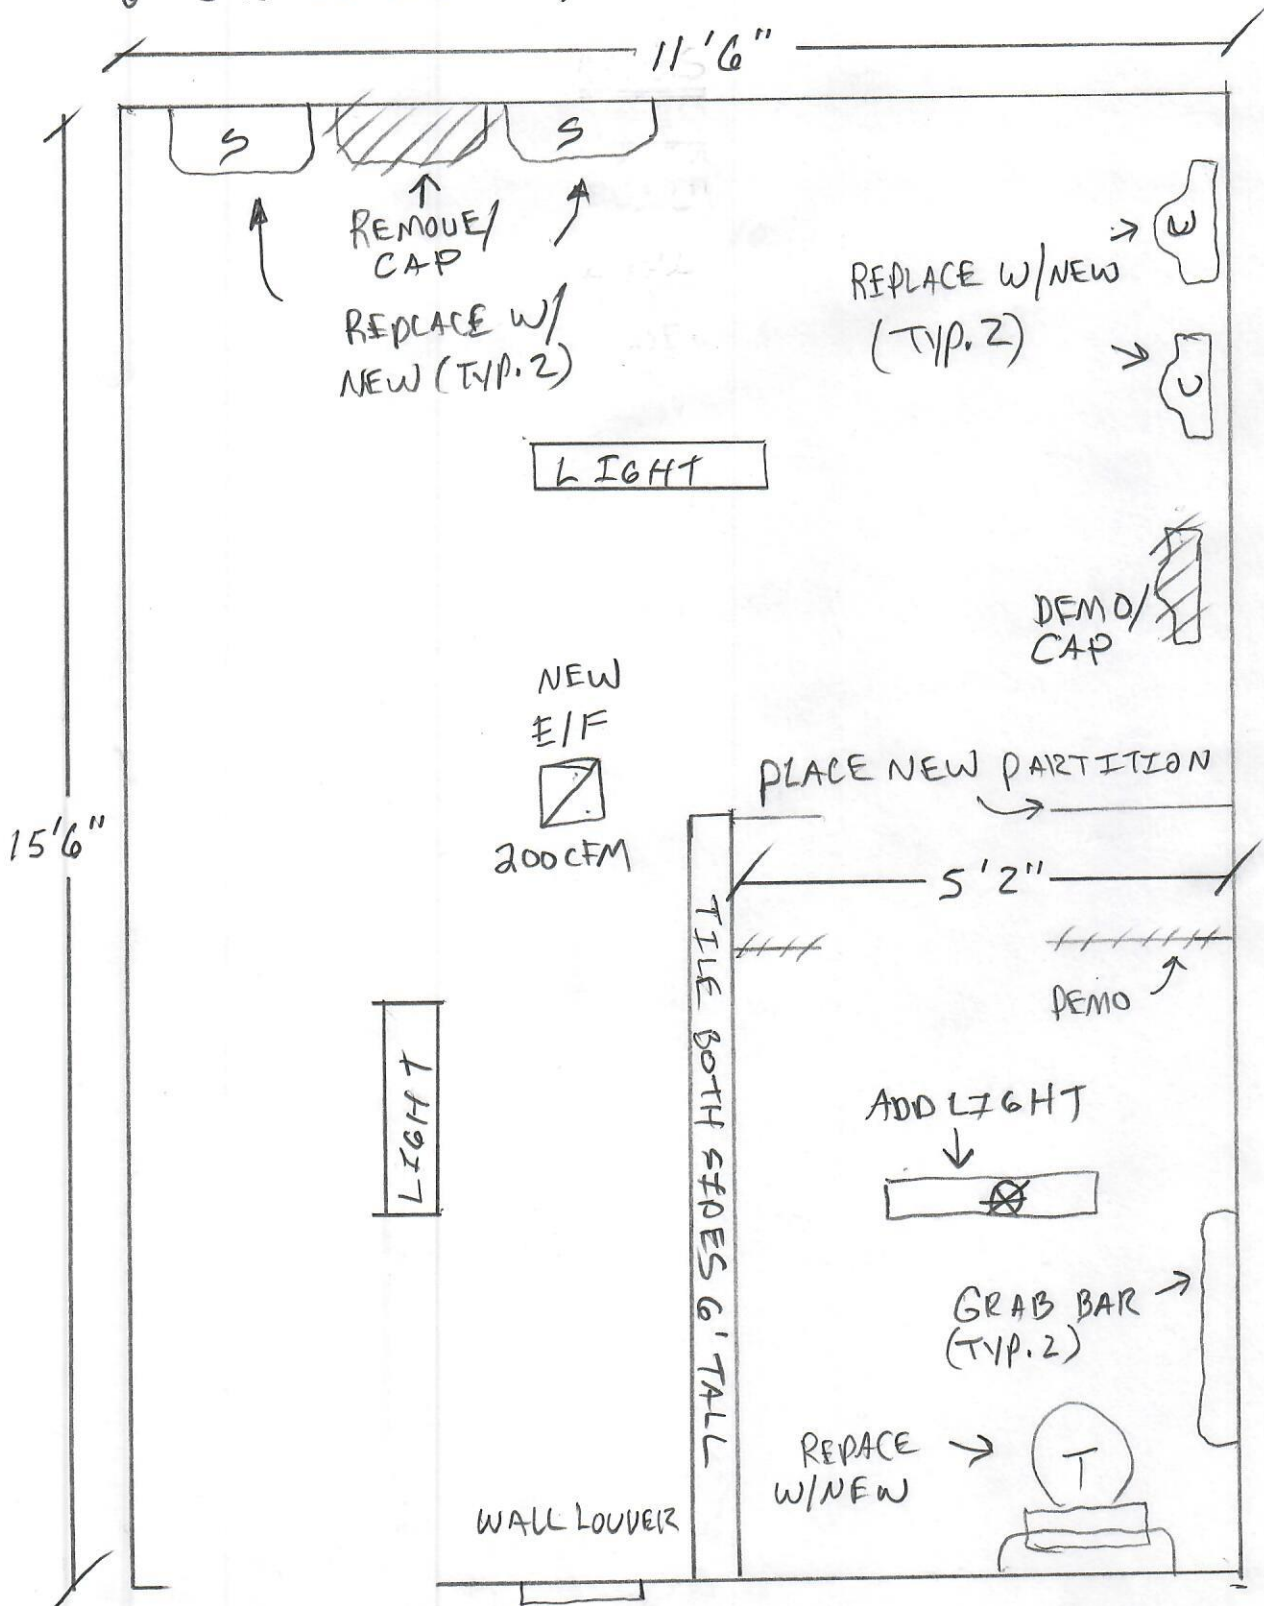 11'6"
S
S
REMOVE/
CAP
REPLACE W/
NEW (TYP. 2)
U
REPLACE W/NEW
(TYP. 2)
U
LIGHT
DEMO/
CAP
NEW
E/F
200 CFM
PLACE NEW PARTITION
15'6"
5'2"
TILE BOTH SIDES 6' TALL
DEMO
LIGHT
ADD LIGHT
GRAB BAR
(TYP. 2)
REPACE
W/NEW
T
WALL LOUVER